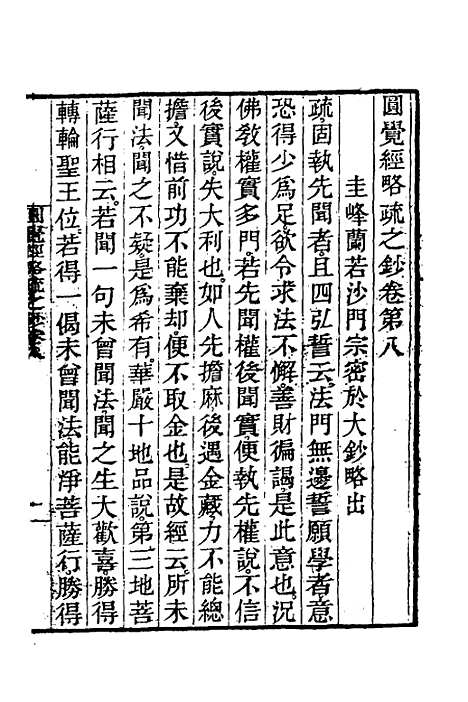 圓覺經略疏之鈔卷第八
圭峰蘭若沙門宗密於大鈔略出
疏固執先聞者且四弘誓云法門無邊誓願學者意
恐得少爲足欲令求法不懈善財徧謁是此意也況
佛敎權實多門若先聞權後聞實便執先權說不信
後實說失大利也如人先擔麻後遇金藏力不能總
擔又惜前功不能棄却便不取金也是故經云所未
聞法聞之不疑是爲希有華嚴十地品說第三地菩
薩行相云若聞一句未曾聞法聞之生大歡喜勝得
轉輪聖王位若得一偈未曾聞法能淨菩薩行勝得
圓覺經略疏之鈔卷八